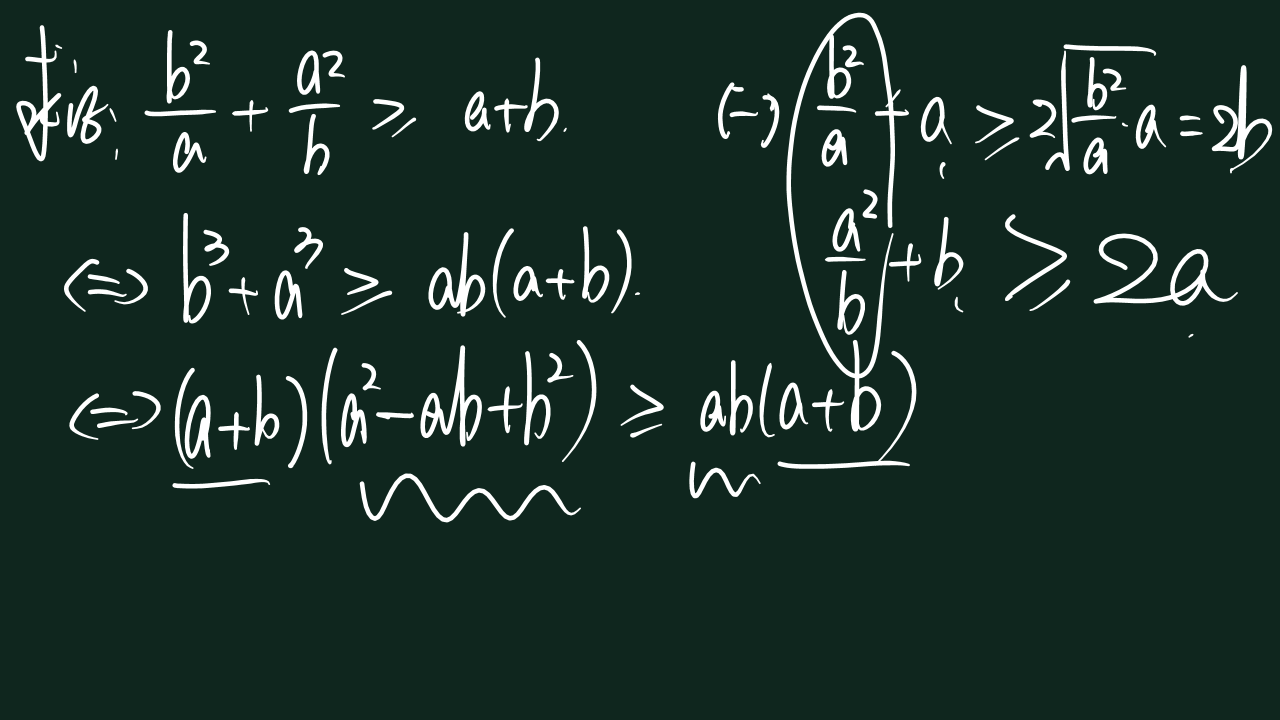 b²/a + a²/b ≥ a+b.
⇔ b³ + a³ ≥ ab(a+b).
⇔ (a+b)(a²-ab+b²) ≥ ab(a+b)
(-) b²/a + a ≥ 2√(b²/a · a) = 2b
a²/b + b ≥ 2a